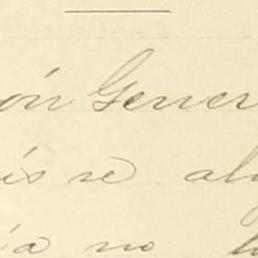 ón Gener
is se al
ia no